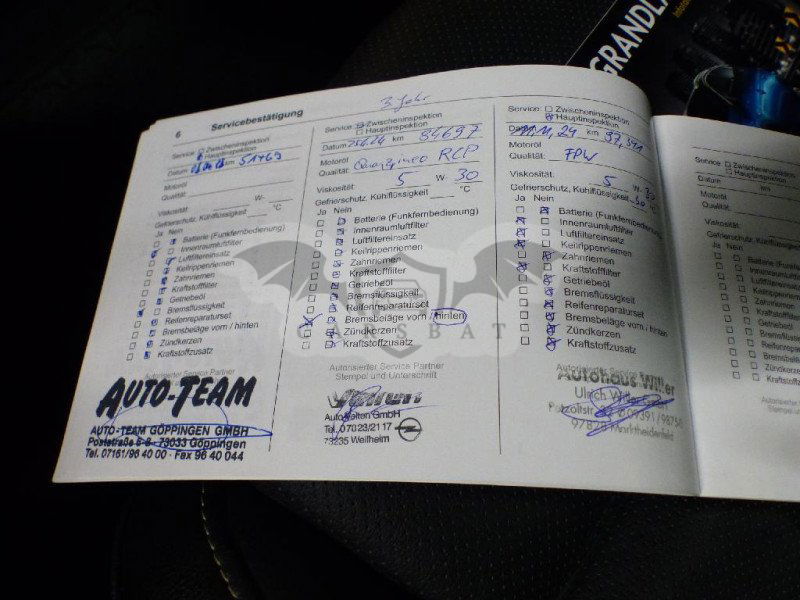 GRANDLA
6 Servicebestätigung
Service: Zwischeninspektion
Hauptinspektion
Datum km 51769
Motoröl
Qualität:
Viskosität: W-
Gefrierschutz, Kühlflüssigkeit °C
Ja Nein
Batterie (Funkfernbedienung)
Innenraumluftfilter
Luftfiltereinsatz
Keilrippenriemen
Zahnriemen
Kraftstofffilter
Getriebeöl
Bremsflüssigkeit
Reifenreparaturset
Bremsbeläge vorn / hinten
Zündkerzen
Kraftstoffzusatz
Autorisierter Service Partner
AUTO-TEAM
AUTO-TEAM GÖPPINGEN GMBH
Poststraße 6-8 · 73033 Göppingen
Tel. 07161/96 40 00 · Fax 96 40 044
3. Jahr
Service: Zwischeninspektion
Hauptinspektion
Datum km 84697
Motoröl
Qualität: RCP
Viskosität: 5 W 30
Gefrierschutz, Kühlflüssigkeit °C
Ja Nein
Batterie (Funkfernbedienung)
Innenraumluftfilter
Luftfiltereinsatz
Keilrippenriemen
Zahnriemen
Kraftstofffilter
Getriebeöl
Bremsflüssigkeit
Reifenreparaturset
Bremsbeläge vorn / hinten
Zündkerzen
Kraftstoffzusatz
Autorisierter Service Partner
Stempel und Unterschrift
GmbH
Tel. 07023/2117
73235 Weilheim
Service: Zwischeninspektion
Hauptinspektion
Datum 11.11.24 km 97,571
Motoröl
Qualität: FPW
Viskosität: 5 W 30
Gefrierschutz, Kühlflüssigkeit 30 °C
Ja Nein
Batterie (Funkfernbedienung)
Innenraumluftfilter
Luftfiltereinsatz
Keilrippenriemen
Zahnriemen
Kraftstofffilter
Getriebeöl
Bremsflüssigkeit
Reifenreparaturset
Bremsbeläge vorn / hinten
Zündkerzen
Kraftstoffzusatz
Autorisierter Service Partner
Autohaus Willer
Ulrich Willer
97828 Marktheidenfeld
Service: Zwischeninspektion
Hauptinspektion
Datum km
Motoröl
Qualität:
Viskosität:
Gefrierschutz, Kühlflüssig
Ja Nein
Batterie (Funkfernbed
Innenraumluftfilter
Luftfiltereinsatz
Keilrippenriemen
Zahnriemen
Kraftstofffilter
Getriebeöl
Bremsflüssigkeit
Reifenreparaturset
Bremsbeläge vorn
Zündkerzen
Kraftstoffzusatz
Autorisierter Service